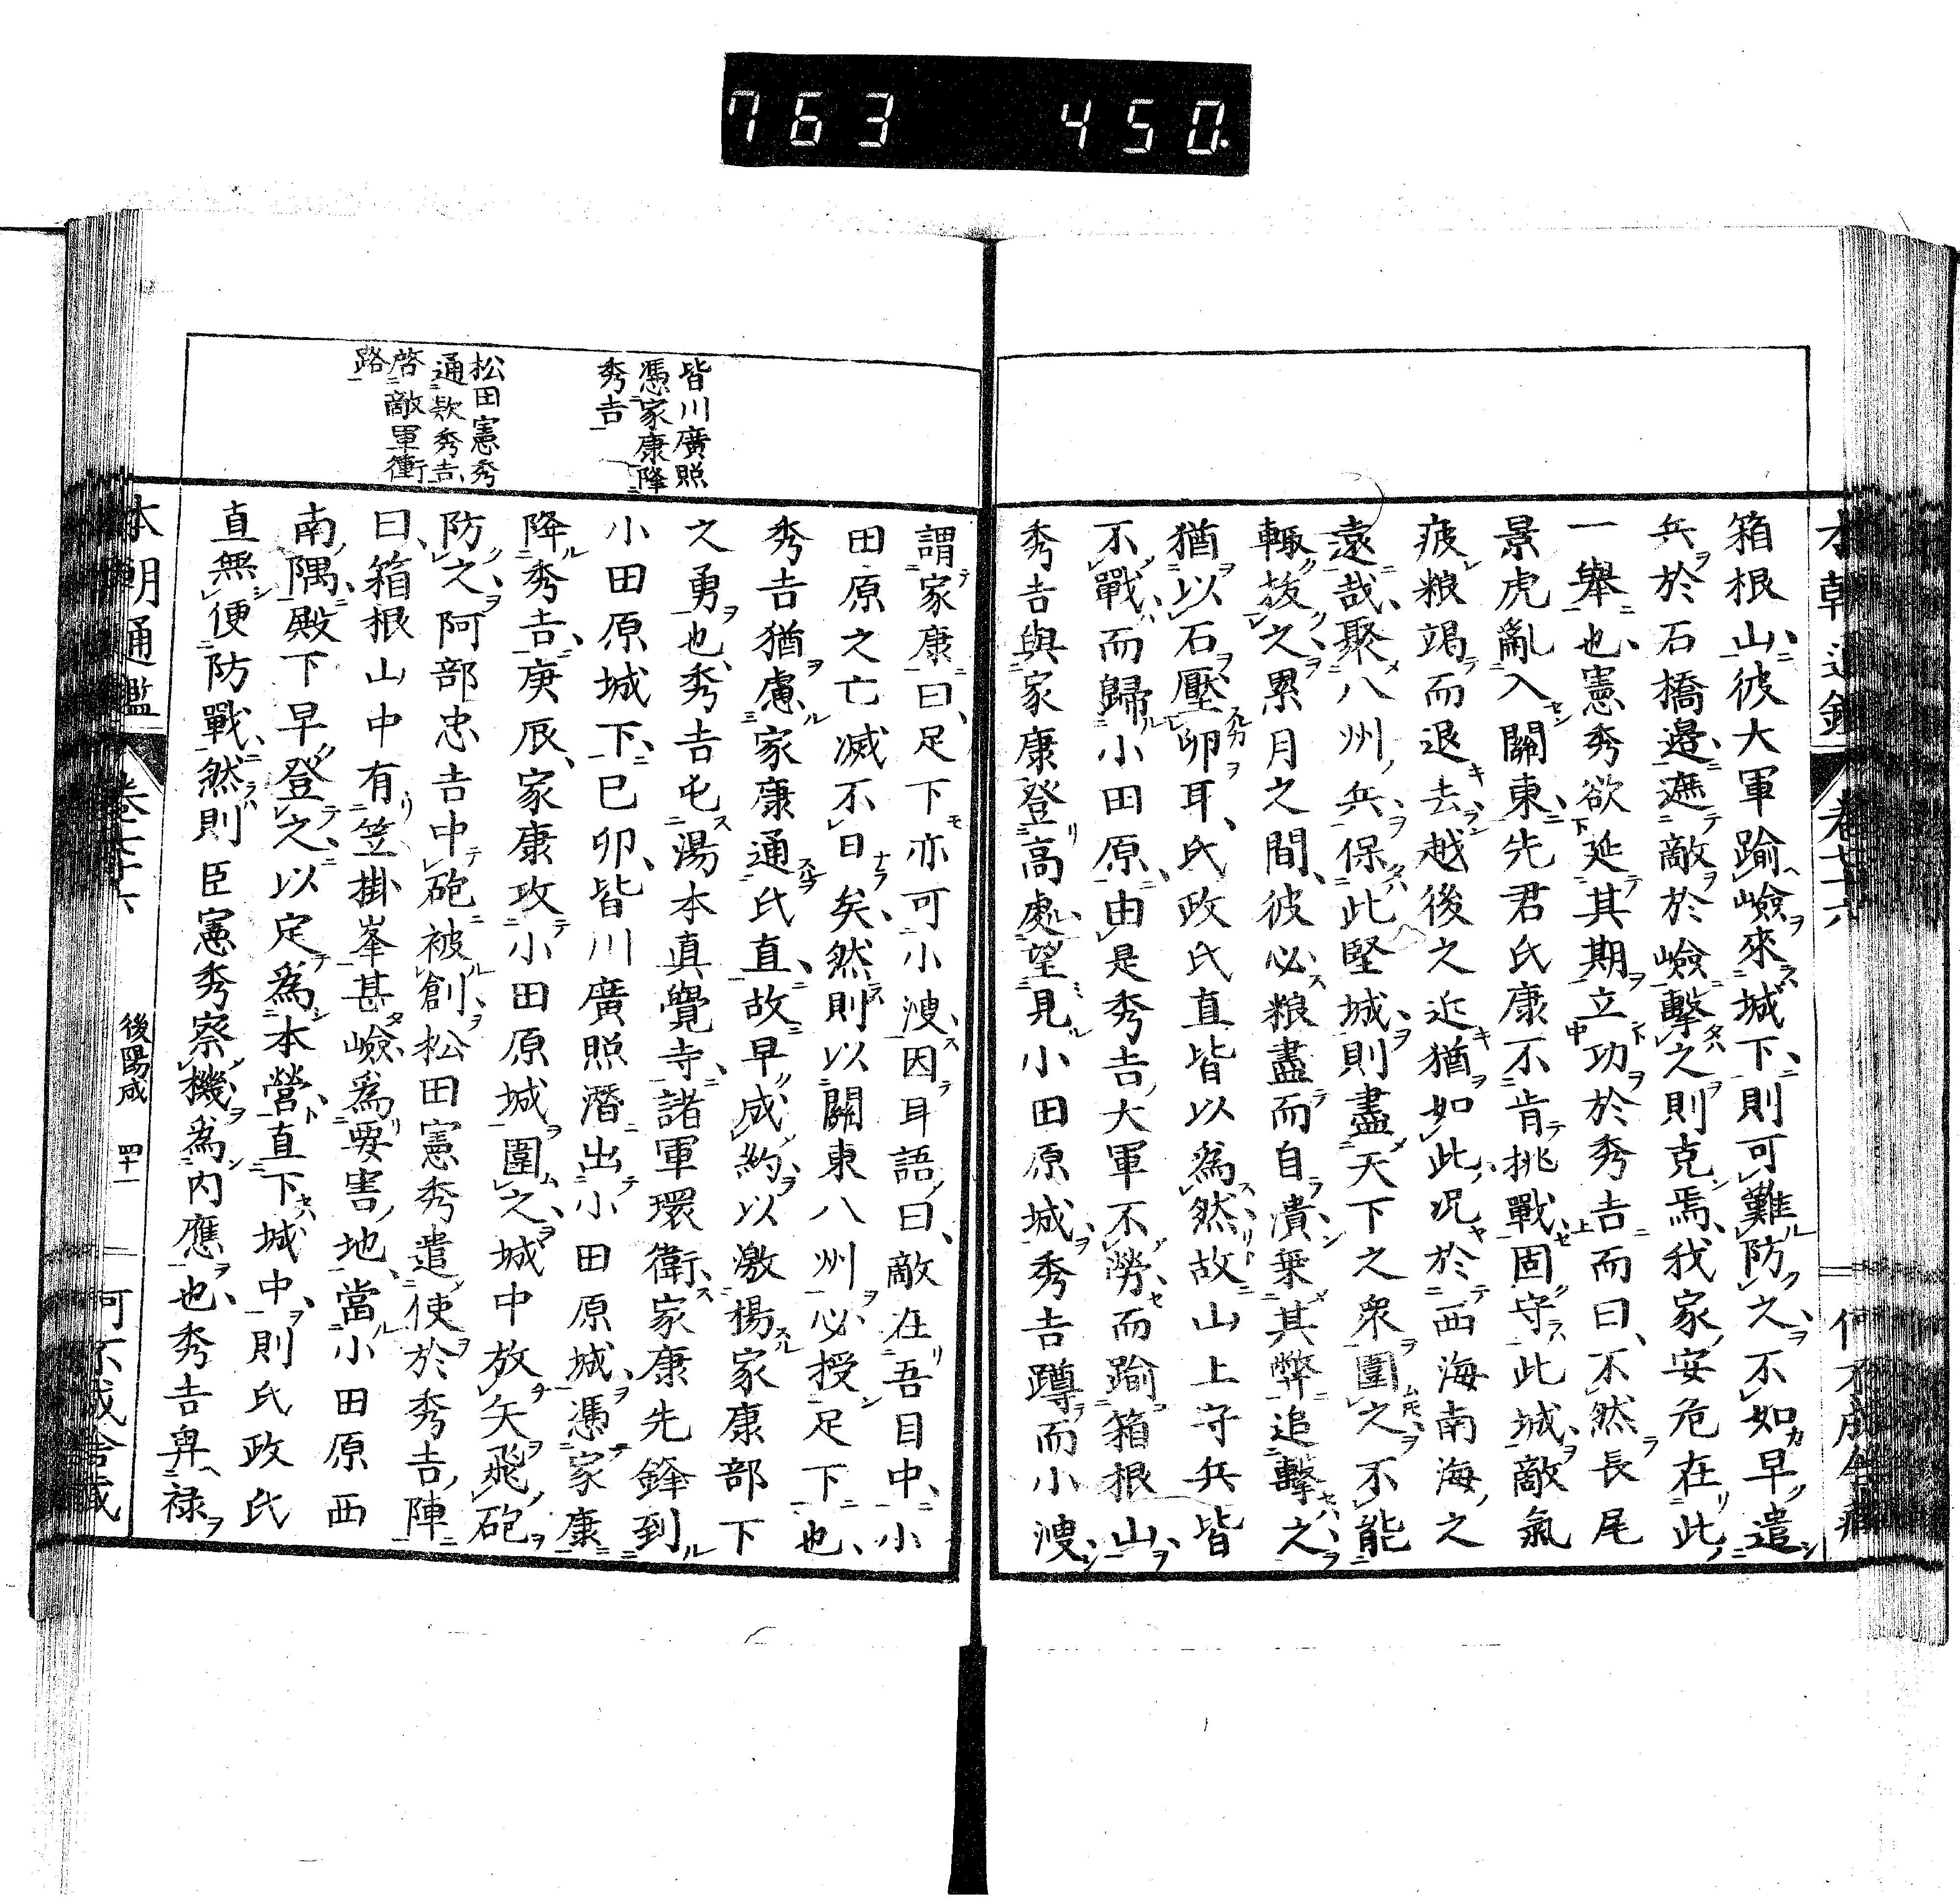 763 450
箱根山彼大軍踰嶮來城下則可難防之不如早遣
兵於石橋邊遮敵於嶮擊之則克焉我家安危在此
一舉也憲秀欲延其期立功於秀吉而曰不然長尾
景虎亂入關東先君氏康不肯挑戰固守此城敵氣
疲粮竭而退去越後之近猶如此況於西海南海之
遠哉聚八州兵保此堅城則盡天下之衆圍之不能
輙拔之累月之間彼必粮盡而自潰乗其弊追擊之
猶以石壓卵耳氏政氏直皆以爲然故山上守兵皆
不戰而歸小田原由是秀吉大軍不勞而踰箱根山
秀吉與家康登高處望見小田原城秀吉蹲而小溲
皆川廣照
憑家康降
秀吉
松田憲秀
通欵秀吉
啓敵軍衝
路
謂家康曰足下亦可小溲因耳語曰敵在吾目中小
田原之亡滅不日矣然則以關東八州必授足下也
秀吉猶慮家康通氏直故早成約以激揚家康部下
之勇也秀吉屯湯本真覺寺諸軍環衛家康先鋒到
小田原城下已卯皆川廣照潛出小田原城憑家康
降秀吉庚辰家康攻小田原城圍之城中放矢飛砲
防之阿部忠吉中砲被創松田憲秀遣使於秀吉陣
曰箱根山中有笠掛峯甚嶮爲要害地當小田原西
南隅殿下早登之以定爲本營直下城中則氏政氏
直無便防戰然則臣憲秀察機爲内應也秀吉畀禄
本朝通鑑 卷七十六 後陽成 四十一